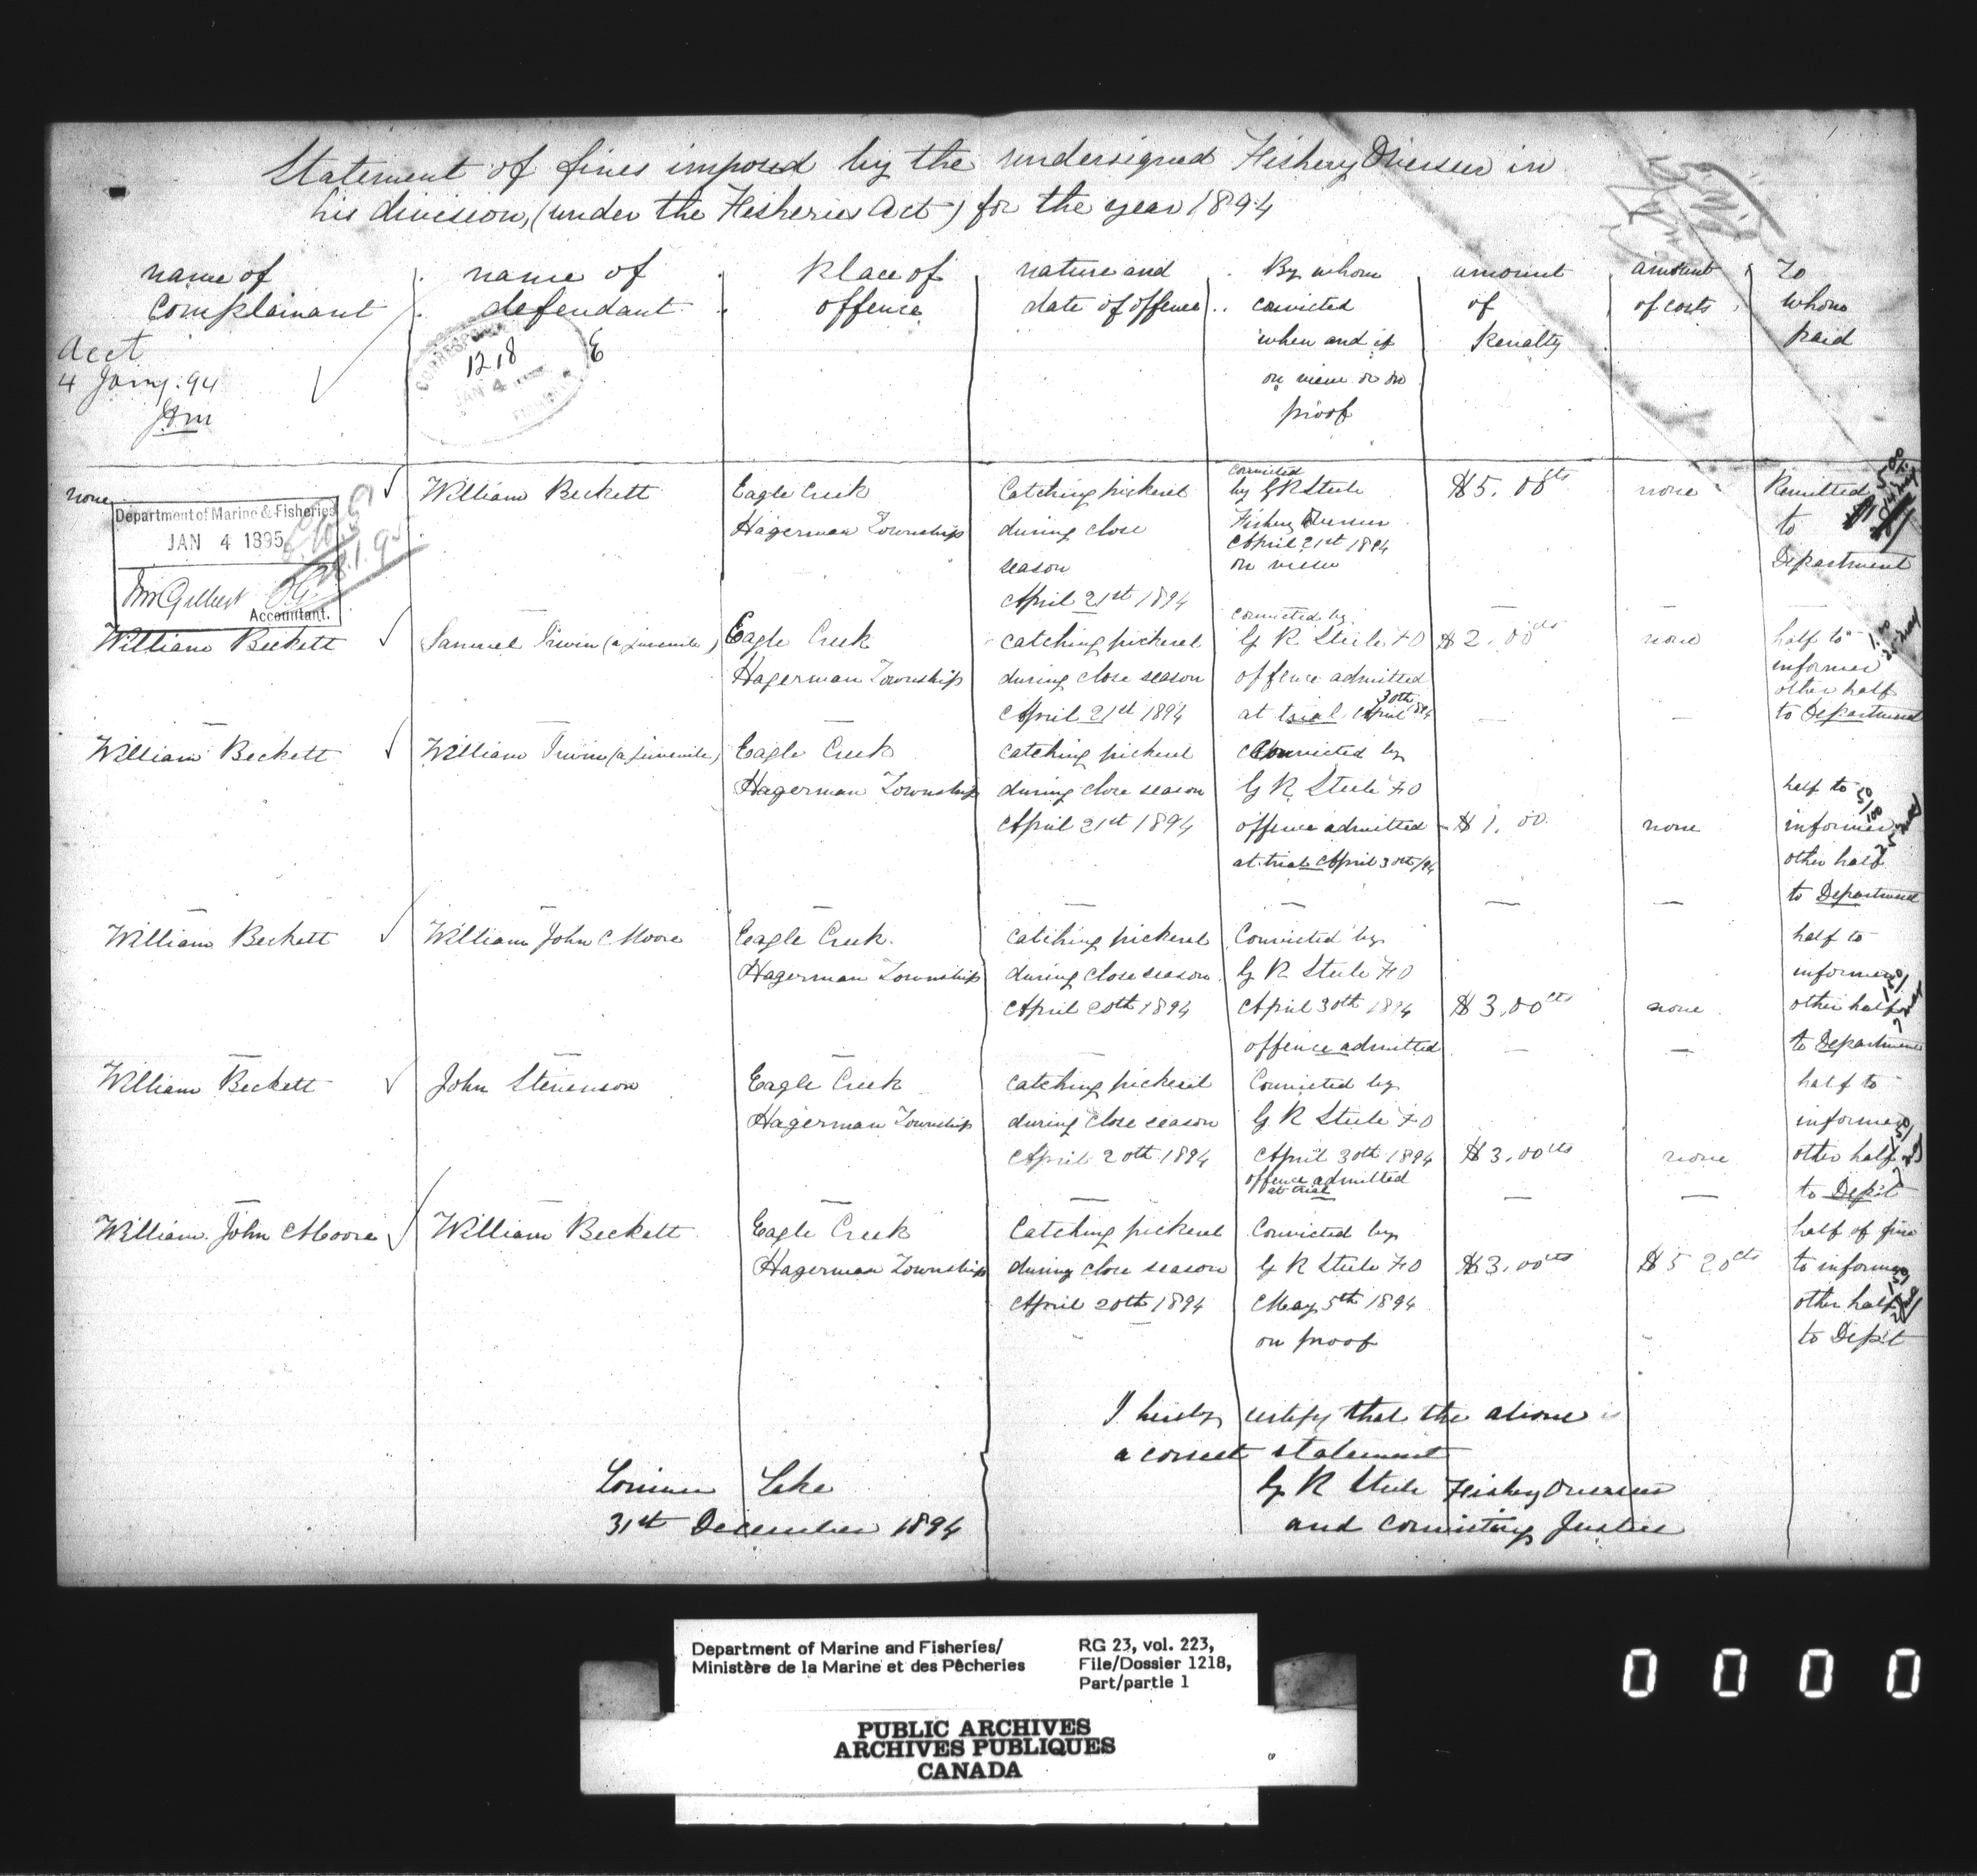 Statement of fines imposed by the undersigned Fishery Overseer in
his division, (under the Fisheries Act) for the year 1894
name of complainant
name of defendant
Place of offence
nature and date of offence
By whom convicted when and if on view or on proof
amount of Penalty
amount of costs
To whom paid
Acct
4 Jany. 94
CORRESPON
1218
JAN 4
E
none
William Beckett
Eagle Creek
Hagerman Township
Catching pickerel
during close
season
April 21st 1894
Convicted
by G R Steele
Fishery Overseer
April 21st 1894
on view
$5.00cts
none
Remitted
to
Department
Department of Marine & Fisheries
JAN 4 1895
Mr Gilbert
Accountant.
William Beckett
Samuel Irwin (a juvenile)
Eagle Creek
Hagerman Township
catching pickerel
during close season
April 21st 1894
convicted by
G R Steele FO
offence admitted
at trial April 30th 1894
$2.00cts
none
half to
informer
other half
to Department
William Beckett
William Irwin (a juvenile)
Eagle Creek
Hagerman Township
catching pickerel
during close season
April 21st 1894
Convicted by
G R Steele FO
offence admitted
at trial April 30th/94
$1.00
none
half to
informer
other half
to Department
William Beckett
William John Moore
Eagle Creek
Hagerman Township
catching pickerel
during close season
April 20th 1894
Convicted by
G R Steele FO
April 30th 1894
offence admitted
$3.00cts
none
half to
informer
other half
to Department
William Beckett
John Stevenson
Eagle Creek
Hagerman Township
catching pickerel
during close season
April 20th 1894
Convicted by
G R Steele FO
April 30th 1894
offence admitted
at trial
$3.00cts
none
half to
informer
other half
to Dept
William John Moore
William Beckett
Eagle Creek
Hagerman Township
Catching pickerel
during close season
April 20th 1894
Convicted by
G R Steele FO
May 5th 1894
on proof
$3.00cts
$5 20cts
half of fine
to informer
other half
to Dept
I hereby certify that the above is
a correct statement
G R Steele Fishery Overseer
and Convicting Justice
Lorimer Lake
31st December 1894
Department of Marine and Fisheries/
Ministère de la Marine et des Pêcheries
RG 23, vol. 223,
File/Dossier 1218,
Part/partie 1
PUBLIC ARCHIVES
ARCHIVES PUBLIQUES
CANADA
0 0 0 0